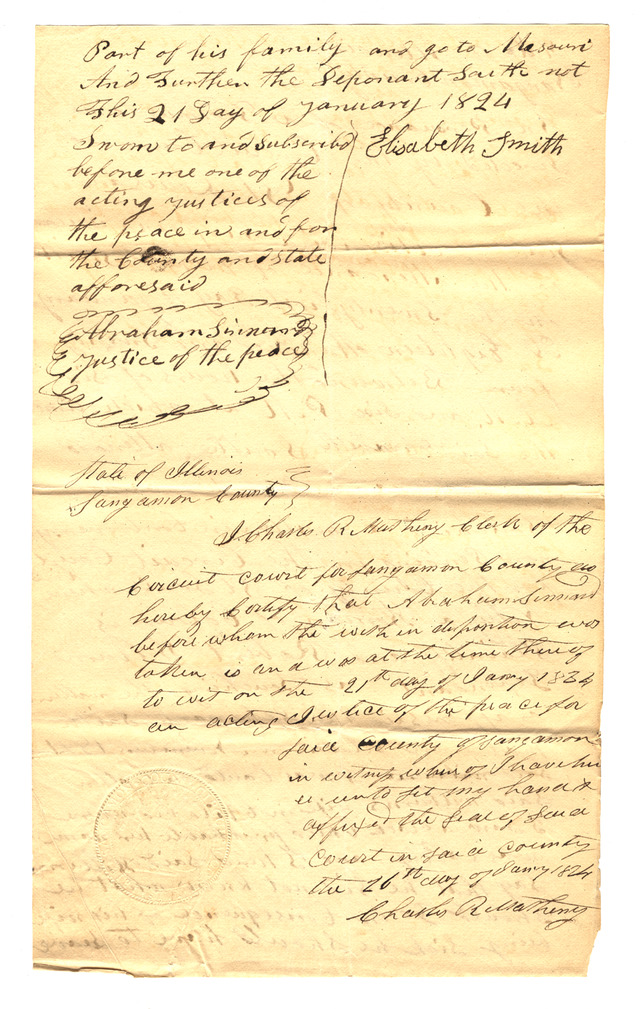 Part of his family and go to Missouri
And Further the Deponant Saith not
This 21 Day of January 1824
Sworn to and Subscribed
Elisabeth Smith
before me one of the
acting justices of
the peace in and for
the County and state
afforesaid
Abraham Sinnard
justice of the peace
State of Illinois
Sangamon County
I Charles R Matheny Clerk of the
Circuit court for Sangamon County do
hereby Certify that Abraham Sinnard
before whom the with in deposition was
taken is and was at the time there of
to wit on the 21th day of Jany 1824
an acting Justice of the peace for
said County of Sangamon
in witness where of I have hu
re unto set my hand &
affixed the seal of said
Court in said County
the 26th day of Jany 1824
Charles R Matheny